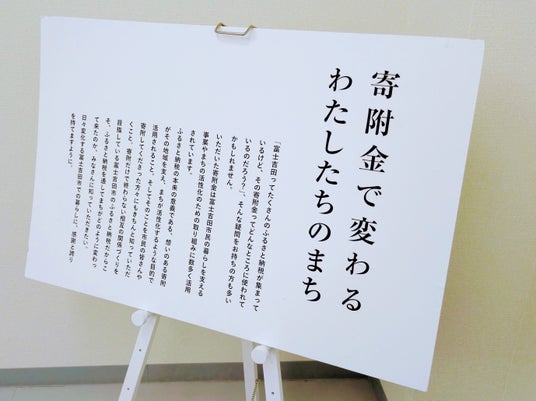 寄附金で変わる
わたしたちのまち
「富士吉田ってたくさんのふるさと納税が集まって
いるけど、その寄附金ってどんなところに使われて
いるのだろう？」、そんな疑問をお持ちの方も多い
かもしれません。
いただいた寄附金は富士吉田市民の暮らしを支える
事業やまちの活性化のための取り組みに数多く活用
されています。
ふるさと納税の本来の意義である、想いのある寄附
がその地域を支え、まちが活性化するような目的で
活用されること、そしてそのことを市民の皆さんや
寄附してくださった方々にもきちんと知っていただ
くこと。寄附だけで終わらない相互の関係づくりを
目指している富士吉田市のふるさと納税だからこ
そ、ふるさと納税を通してまちがどのように変わっ
て来たのか、みなさんに知っていただきたい。
日々変化する富士吉田市での暮らしに、感謝と誇り
を持てますように。